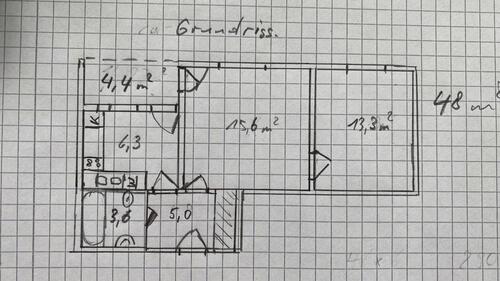 Grundriss.
4,4 m²
6,3
K
15,6 m²
13,3 m²
48 m²
3,6
5,0